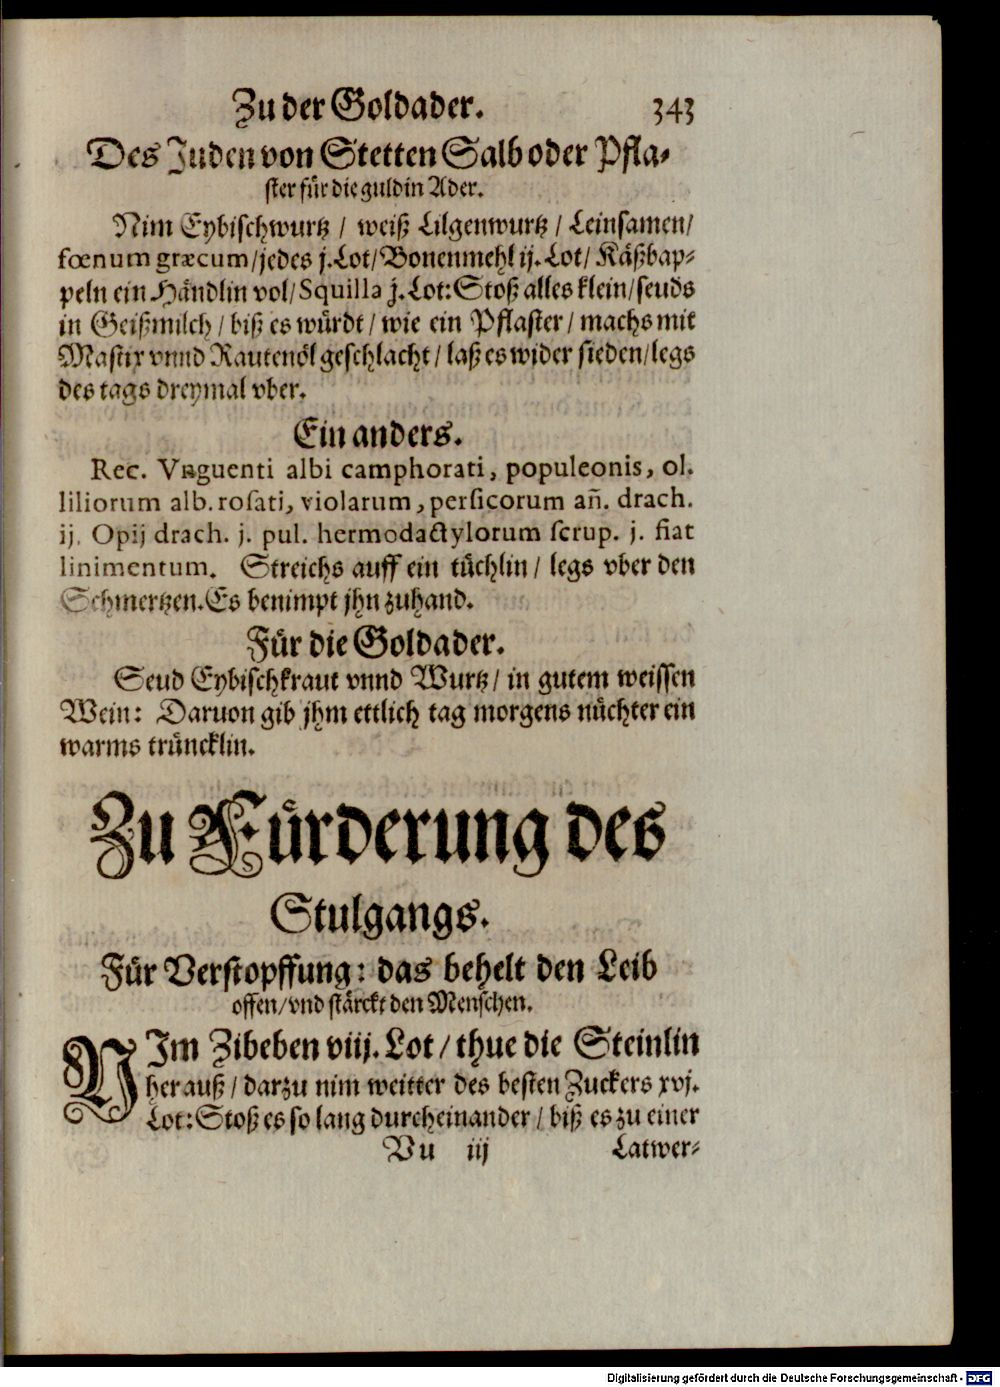 Zu der Goldader. 343
Des Juden von Stetten Salb oder Pfla⸗
ster für die guldin Ader.
Nim Eybischwurtz / weiß Lilgenwurtz / Leinsamen /
fœnum græcum / jedes j. Lot / Bonenmehl ij. Lot / Käßbap⸗
peln ein Händlin vol / Squilla j. Lot: Stoß alles klein / seuds
in Geißmilch / biß es würdt / wie ein Pflaster / machs mit
Mastix vnnd Rautenöl geschlacht / laß es wider sieden / legs
des tags dreymal vber.
Ein anders.
Rec. Vnguenti albi camphorati, populeonis, ol.
liliorum alb. rosati, violarum, persicorum añ. drach.
ij. Opij drach. j. pul. hermodactylorum scrup. j. fiat
linimentum. Streichs auff ein tüchlin / legs vber den
Schmertzen. Es benimpt jhn zuhand.
Für die Goldader.
Seud Eybischkraut vnnd Wurtz / in gutem weissen
Wein: Daruon gib jhm ettlich tag morgens nüchter ein
warms trüncklin.
Zu Fürderung des
Stulgangs.
Für Verstopffung: das behelt den Leib
offen / vnd stärckt den Menschen.
NIm Zibeben viij. Lot / thue die Steinlin
herauß / darzu nim weitter des besten Zuckers xvj.
Lot: Stoß es so lang durcheinander / biß es zu einer
Vu iij Latwer⸗
Digitalisierung gefördert durch die Deutsche Forschungsgemeinschaft - DFG